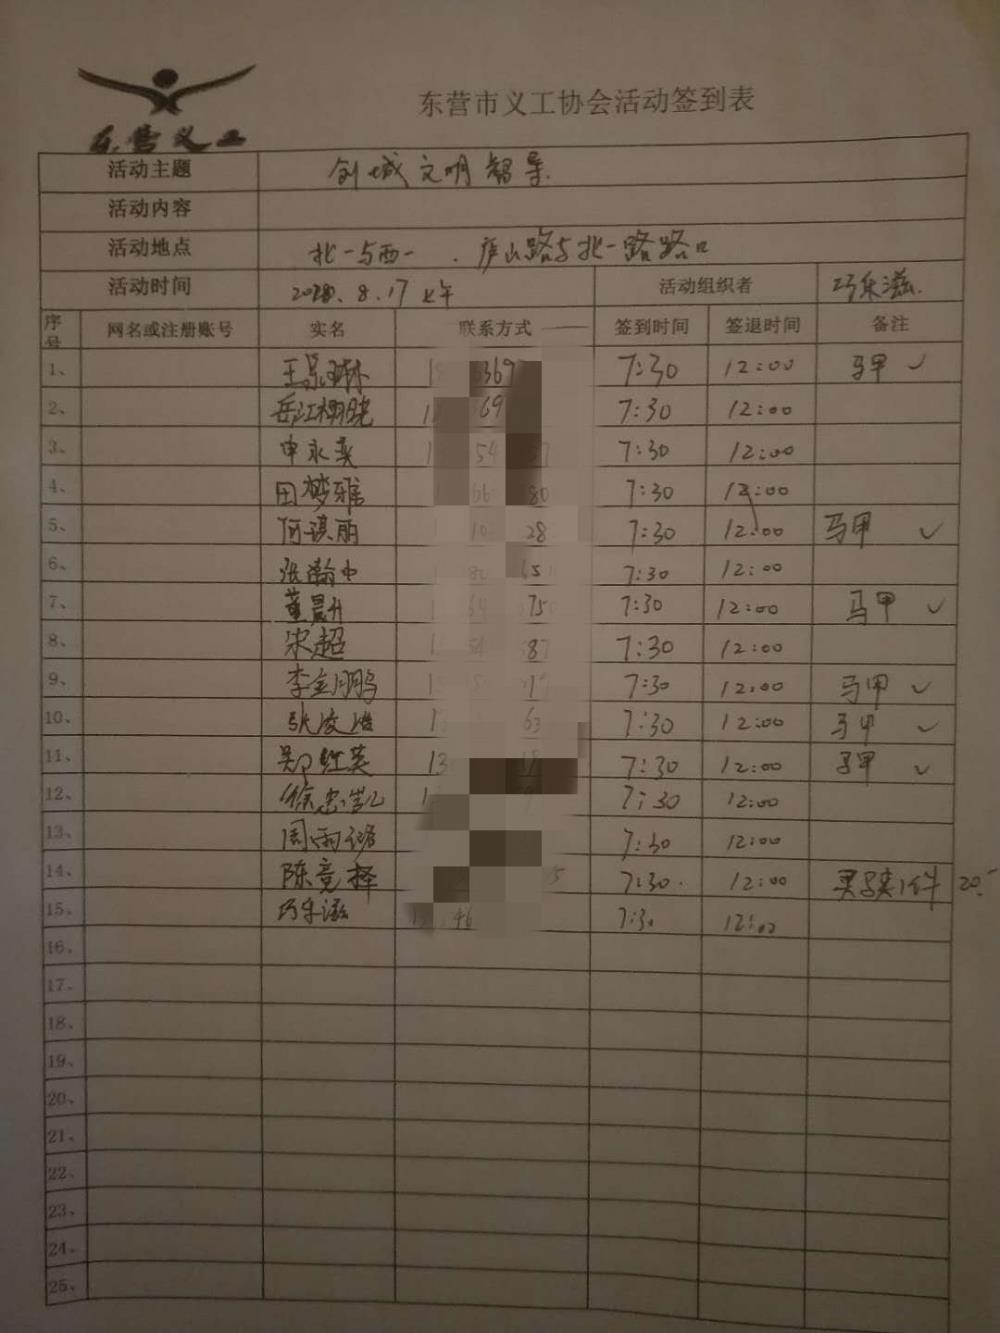 东营市义工协会活动签到表
东营义工
活动主题 创城文明督导
活动内容
活动地点 北一与西一、庐山路与北一路路口
活动时间 2020.8.17 上午 活动组织者
序号 网名或注册账号 实名 联系方式 签到时间 签退时间 备注
1、 7:30 12:00 马甲 ✓
2、 7:30 12:00
3、 申永英 7:30 12:00
4、 田梦雅 7:30 12:00
5、 何谋丽 28 7:30 12:00 马甲 ✓
6、 张瀚中 7:30 12:00
7、 董晨升 7:30 12:00 马甲 ✓
8、 宋超 87 7:30 12:00
9、 李金鹏 7:30 12:00 马甲 ✓
10、 张凌浩 63 7:30 12:00 马甲 ✓
11、 郑红英 13 7:30 12:00 马甲 ✓
12、 徐忠凯 7:30 12:00
13、 周雨 7:30 12:00
14、 陈竞择 7:30 12:00 1件 20
15、 46 7:30 12:00
16、
17、
18、
19、
20、
21、
22、
23、
24、
25、